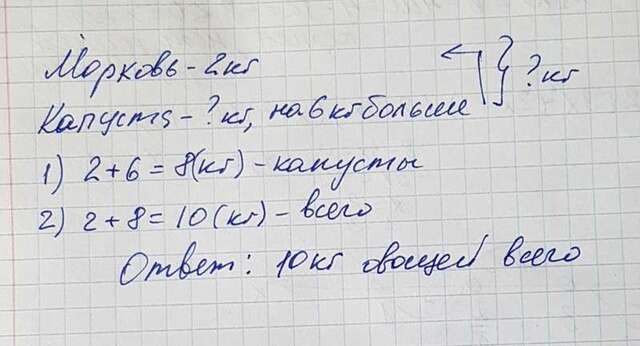 Морковь - 2 кг
Капуста - ? кг, на 6 кг больше
? кг
1) 2 + 6 = 8 (кг) - капусты
2) 2 + 8 = 10 (кг) - всего
Ответ: 10 кг овощей всего